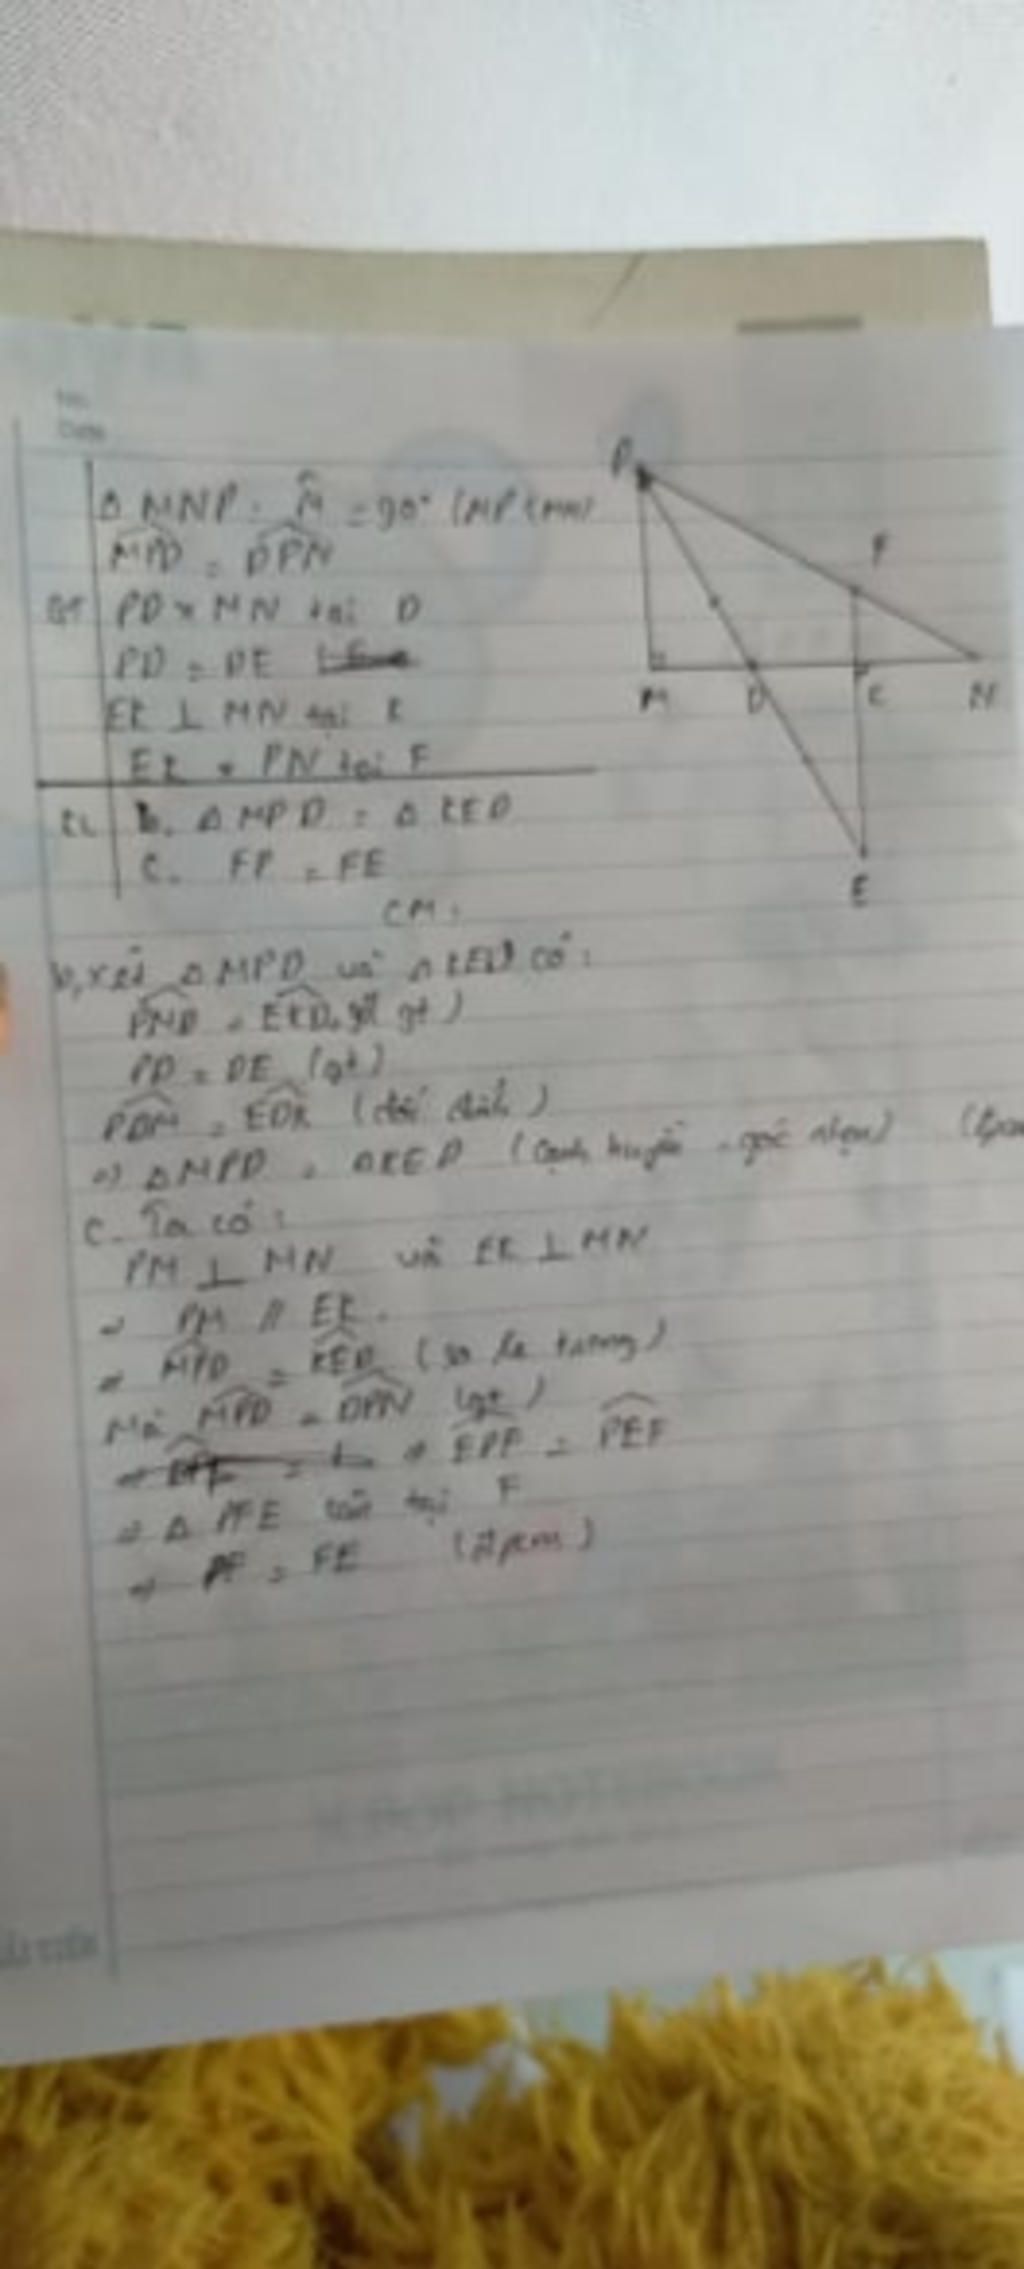 No.
Date
Δ MNP. M̂ = 90° (MP < MN)
MPD = DPN
GT PD x MN tại D
PD = DE
EK ⊥ MN tại K
EK x PN tại F
KL b. Δ MPD = Δ KED
C. FP = FE
CM:
b, xét Δ MPD và Δ KED có:
= EKD gt)
PD = DE (gt)
PDM = EDK (đối đỉnh)
=> Δ MPD = Δ KED (cạnh huyền - góc nhọn)
C. Ta có:
PM ⊥ MN và EK ⊥ MN
=> PM // EK.
=> MPD = KED (so le trong)
Mà MPD = DPN (gt)
=> EPF = PEF
=> Δ PFE cân tại F
=> PF = FE (đpcm)
P
F
M D K N
E